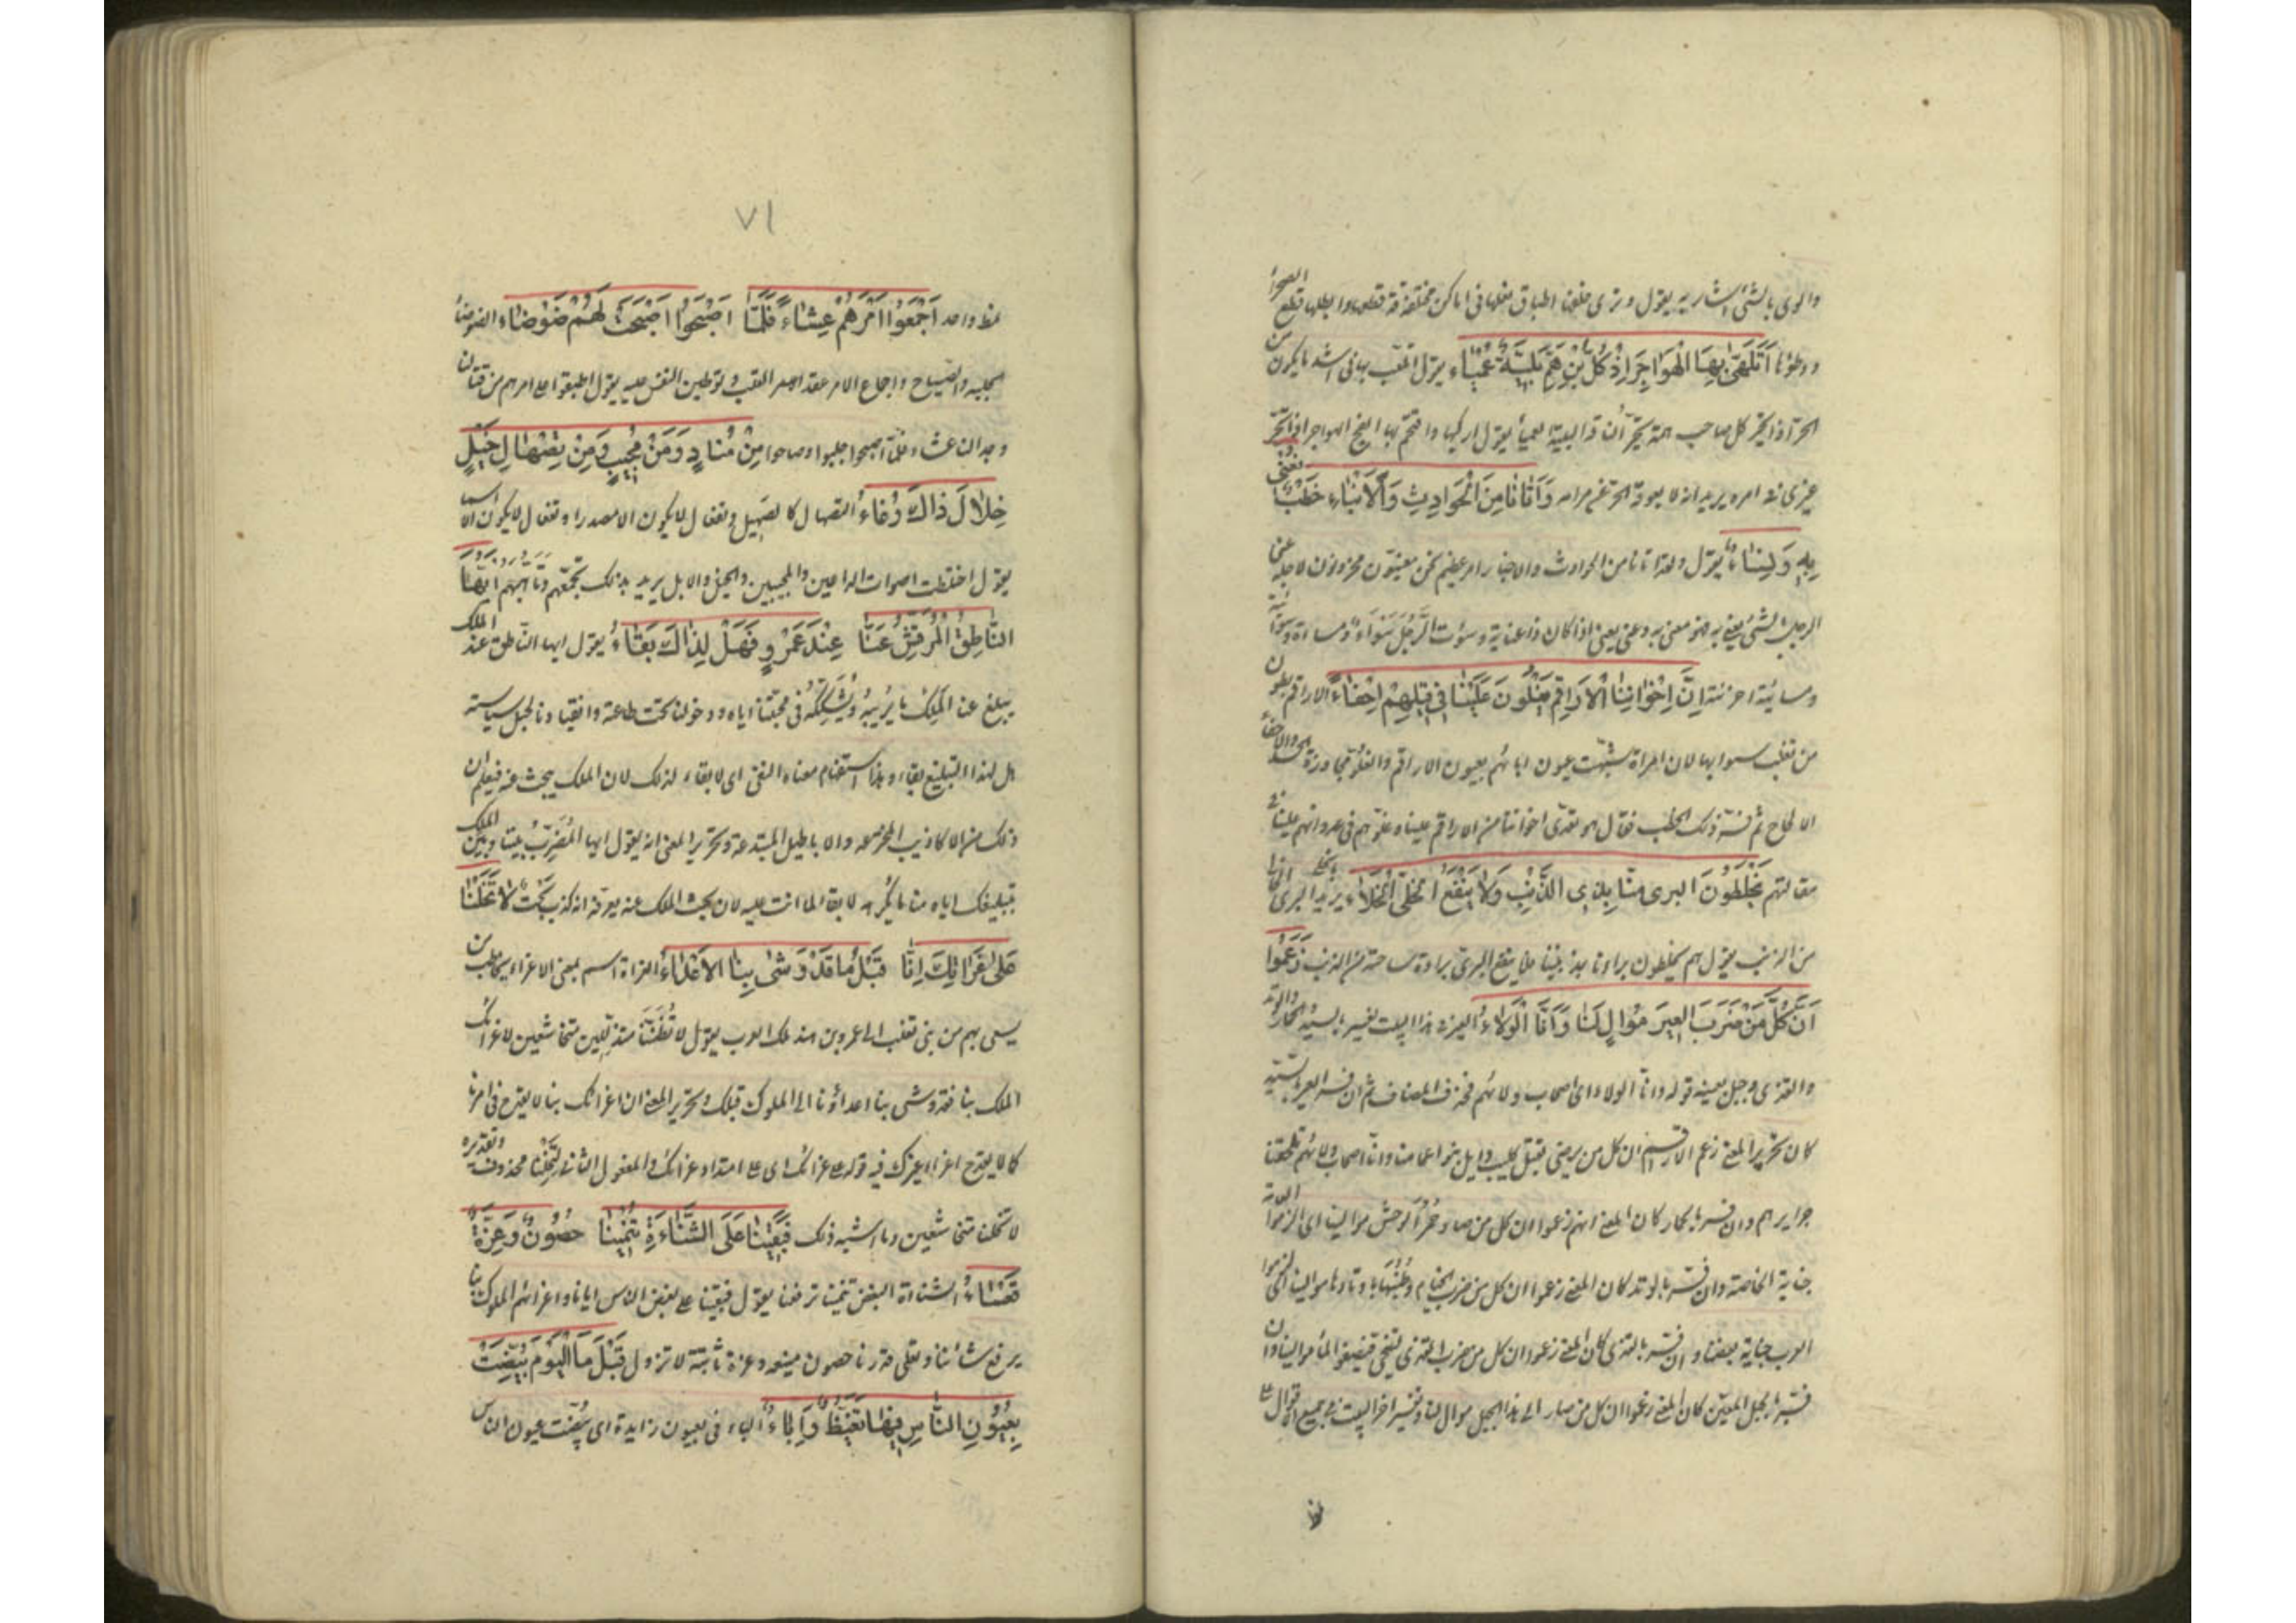 والوى بالشئ اشار به يقول وترى خلفها اطباق نعلها فى اماكن مختلفة قد قطعها وابطلها قطع الصحرا
ووطؤها اَتَلَهّى بِهَا الْهَوَاجِرَ اِذْ كُلُّ ابْنِ هَمٍّ بَلِيَّةٌ عَمْيَاء يقول اتلعب بها فى اشد ما يكون من
الحر اذا تحير كل صاحب همّ تحير الناقة البلية العمياء يقول اركبها واقتحم بها لفح الهواجر اذا تحير
غيرى فى امره يريد انه لا يعوقه الحر عن مرامه وَاَتَانَا مِنَ الْحَوَادِثِ وَالْاَنْبَاءِ خَطْبٌ نُعْنى
بِهِ وَنُسَاءُ يقول ولقد اتانا من الحوادث والاخبار امر عظيم نحن معنيون محزونون لاجله عنى
الرجل بالشئ يعنى به فهو معنى به وعنى يعنى اذا كان ذا عناية وسؤت الرَّجُلَ سَوَاءً ومساءة وسوآ
ومسائية احزنته اِنَّ اِخْوَانَنَا الْاَرَاقِمَ يَغْلُونَ عَلَيْنَا فى قِيلِهِمْ اِحْفَاءُ الاراقم بطون
من تغلب سموا بها لان امراة شبهت عيون ابائهم بعيون الاراقم والغلو مجاوزة الحد والاحفاء
الالحاح ثم فسّر ذلك الخطب فقال هو تعدى اخواننا من الاراقم علينا وغلوهم فى عدوانهم علينا فى
مقالتهم يَخْلِطُونَ البرى منّا بِذِى الذَّنْبِ وَلَا يَنْفَعُ الْخَلِىَّ الْخَلَاءُ يريد بالخلى البرى الخالى
من الذنب يقول هم يخلطون براءنا بمذنبينا فلا ينفع البرئ براءة ساحته من الذنب زَعَمُوا
اَنَّ كُلَّ مَنْ ضَرَبَ العِيرَ مُوَالٍ لَنَا وَاَنَّا الْوَلَاءُ العير فى هذا البيت يفسر بالسيد والحمار والوتد
والقذى وجبل بعينه قوله وانّا الولاء اى اصحاب ولائهم فحذف المضاف ثم ان فسر العير بالسيد
كان تحرير المعنى زعم الاراقم ان كل من يرضى بقتل كليب وايل بنو اعمامنا وانّا اصحاب ولائهم تلحقنا
جرايرهم وان فسر بالحمار كان المعنى انهم زعموا ان كل من صاد حُمُرَ الوحش موالينا اى الزموا العامة
جناية الخاصة وان فسّر بالوتد كان المعنى زعموا ان كل من ضرب الخيام وطنبها باوتادها موالينا اى الزموا
العرب جناية بعضنا وان فسّر بالقذى كان المعنى زعموا ان كل من ضرب القذى لتنحى فيصفو الماء موالينا وان
فسّر بالجبل المعيّن كان المعنى زعموا ان كل من صار الى هذا الجبل موال لنا وتفسير اخر البيت فى جميع الاقوال على
نمط
٧١
نمط واحد اَجْمَعُوا اَمْرَهُمْ عِشَاءً فَلَمَّا اَصْبَحُوا اَصْبَحَتْ لَهُمْ ضَوْضَاءُ الضوضاء
الجلبة والصياح واجماع الامر عقد القلب وتوطين النفس عليه يقول اطبقوا على امرهم من قتالنا
وجدالنا عشاء فلمّا اصبحوا جلبوا وصاحوا مِنْ مُنَادٍ وَمَنْ مُجِيبٍ وَمِنْ تِصْهَالِ خَيْلٍ
خِلَالَ ذَاكَ رُغَاءُ التصهال كالصهيل وتفعال لا يكون الا مصدرا وتفعال لا يكون الا اسما
يقول اختلطت اصوات الداعين والمجيبين والخيل والابل يريد بذلك تجمّعهم وتأهبهم اَيُّهَا
النَّاطِقُ الْمُرَقِّشُ عَنَّا عِنْدَ عَمْرٍو فَهَلْ لِذَاكَ بَقَاءُ يقول ايها النّاطق عند الملك
يبلغ عنا الملِكَ ما يُرِيبُهُ ويُشَكِّكُهُ فى محبّتنا اياه ودخولنا تحت طاعته وانقيادنا لحبل سياسته
هل لهذا التبليغ بقاء وهذا استفهام معناه النفى اى لا بقاء لذلك لان الملك يبحث عنه فيعلم ان
ذلك من الاكاذيب المخترعة والاباطيل المبتدعة وتحرير المعنى انه يقول ايها المُضَرِّبُ بيننا وبين الملك
بتبليغك اياه عنا ما يكرهه لا بقاء لما انت عليه لان بحث الملك عنه يعرفه انه كذب بحت لَا تَخَلْنَا
عَلى غَرَاتِكَ اِنَّا قَبْلُ مَا قَدْ وَشى بِنَا الاَعْدَاءُ الغراة اسم بمعنى الاغراء يخاطب من
يسعى بهم من بنى تغلب الى عمرو بن هند ملك العرب يقول لا تَظُنَّنَا متذللين متخاشعين لاغرائك
الملك بنا فقد وشى بنا اعداؤنا الى الملوك قبلك وتحرير المعنى ان اغرائك بنا لا يقدح فى امرنا
كما لا يقدح اغراء غيرك فيه قوله على غرائك اى على امتداد غرائك والمفعول الثانى لتَخَلْنا محذوف وتقديره
لا تخلنا متخاشعين وما اشبه ذلك فَبَقِينَا عَلَى الشَّنَاءَةِ تَنْمِينَا حُصُونٌ وَعِزَّةٌ
قَعْسَاءُ الشناءة البغض تنمينا ترفعنا يقول فبقينا على بغض الناس ايانا واغرائهم الملوك بنا
يرفع شاننا ويعلى قدرنا حصون منيعة وعزة ثابتة لا تزول قَبْلَ مَا الْيَوْمَ بَيَّضَتْ
بِعُيُونِ النَّاسِ فِيهَا تَغَيُّظٌ وَاِبَاءُ الباء فى بعيون زايدة اى بيّضت عيون الناس